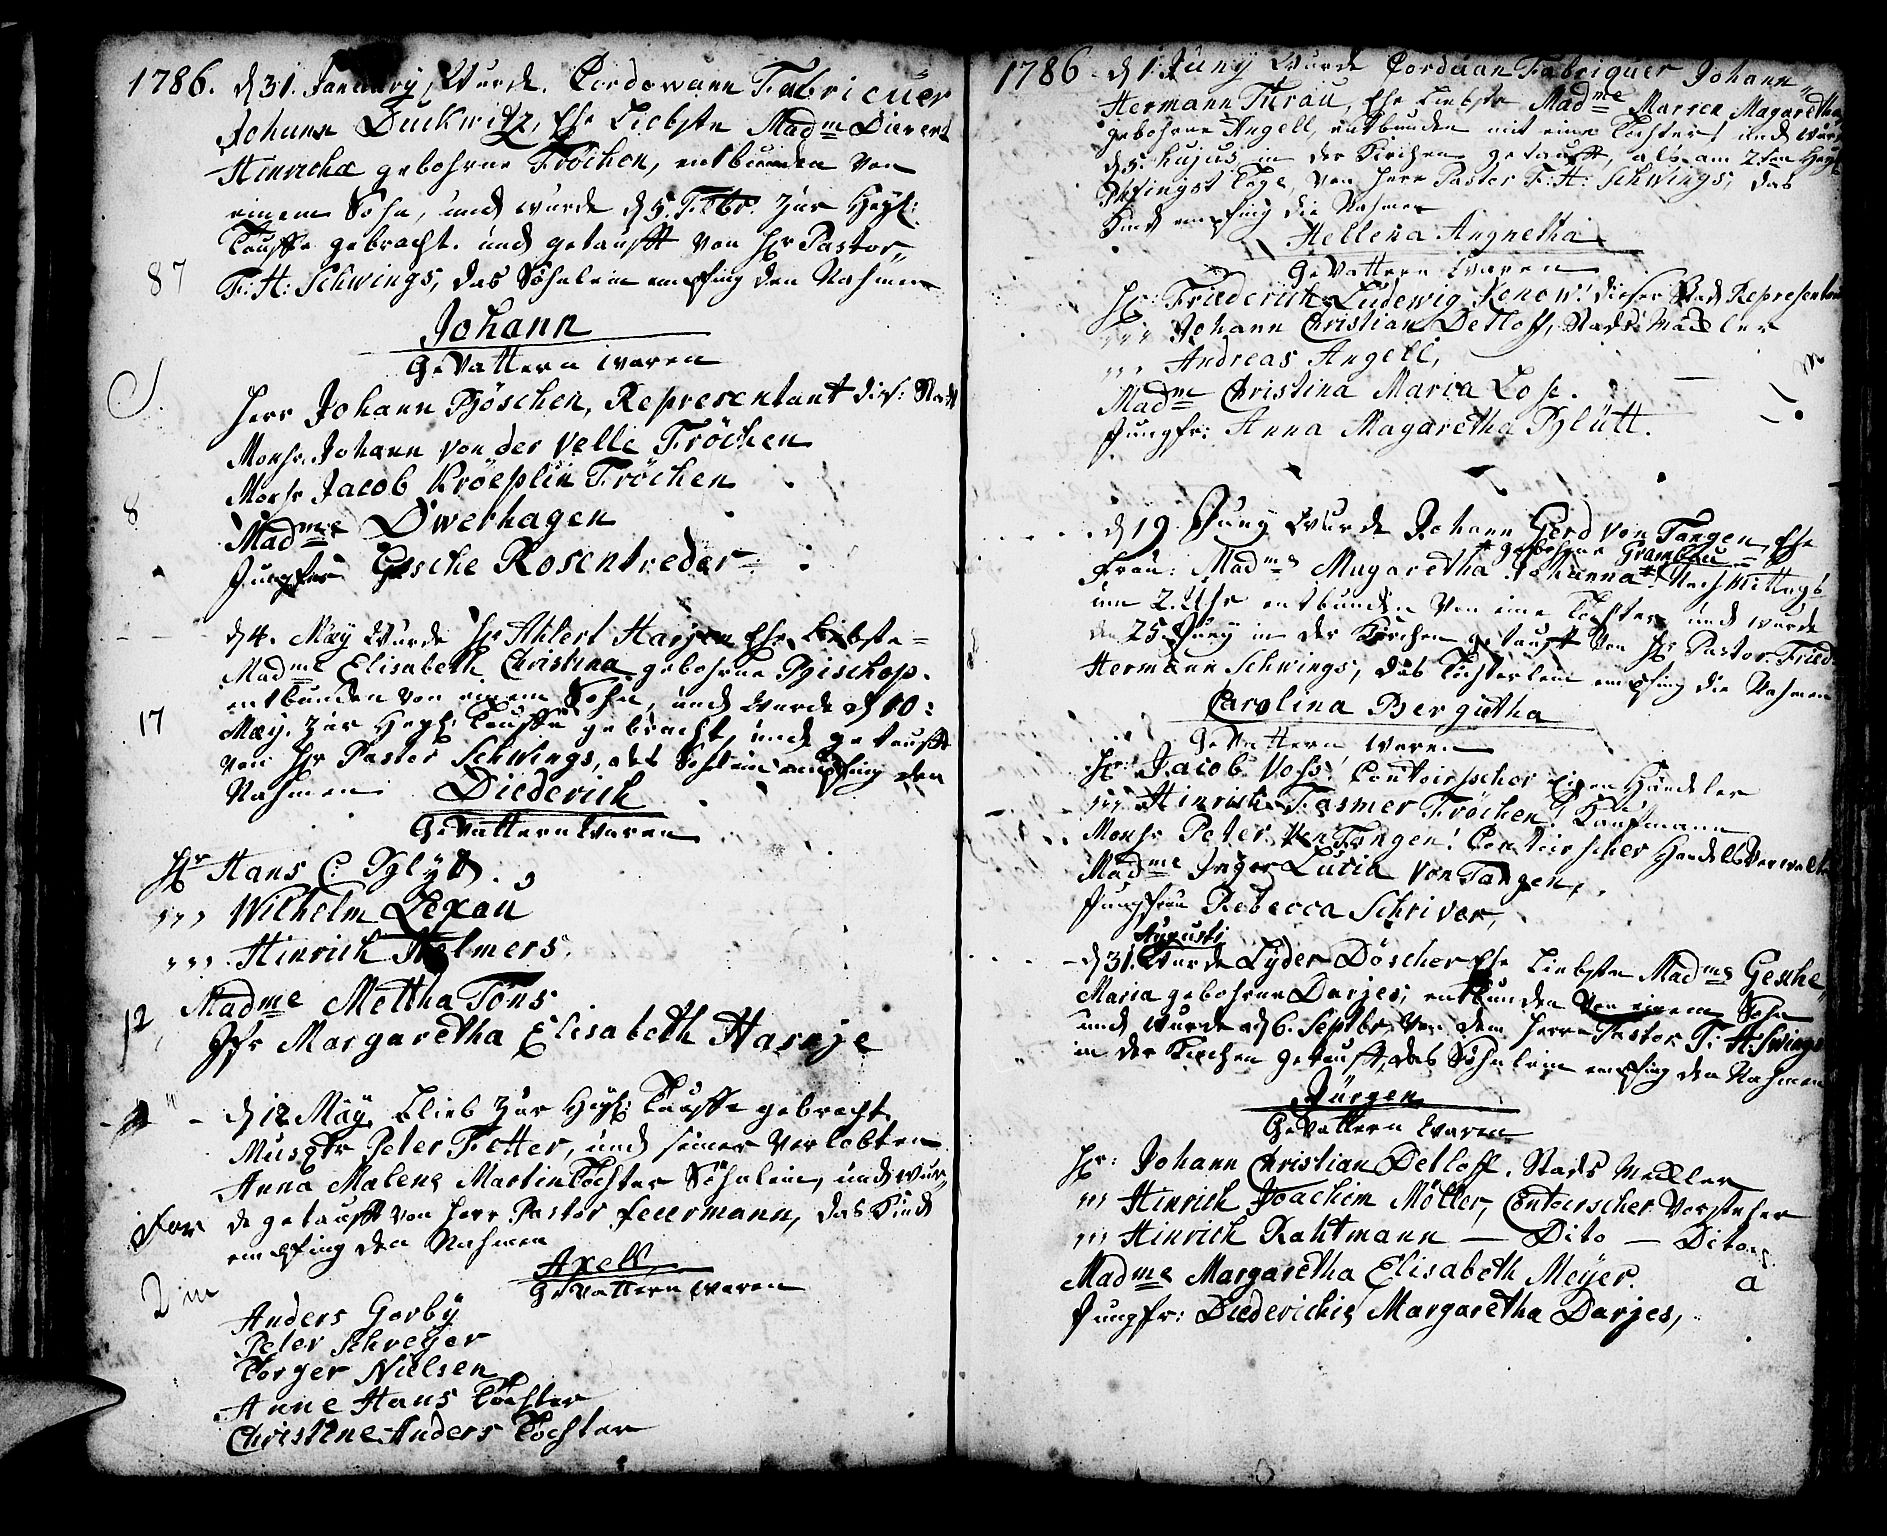 1786. d 31. January, Wurde. Cordowann Fabricüer
Johann Duckwitz, Ehe Liebste Madme Dievert
Hinricha gebohrne Fröchen, entbunden von
einem Sohn, und wurde d 5. Febr. zur Heyl:
Tauffe gebracht. und getaufft von Hr Pastor,,
87
F: H: Schwings, das Söhnlein empfing den Nahmen
Johann
GeVattern waren
Herr Johann Böschen, Representant dies: Stadt
Monsr. Johann von der Velle Fröchen
Monsr Jacob Kröeplin Fröchen
8
Madme Dwerhagen
Jungfer Gesche Rosentreder
d 4. May Wurde Hr Ahlert Harjen Ehe Liebste =
Madme Elisabeth Christina gebohrne Bischop.
entbunden von einem Sohn, und wurde d 10:
17
May. zur Heyl: Tauffe gebracht, und getaufft
von Hr Pastor Schwings, das Sohnlein empfing den
Nahmen Diederich
GeVattern Waren
Hr Hans C: Blytt.
,,, Wilhelm Lexau
,,, Hinrich Holmers.
Madme Mettha Töns
12
Jfr Margaretha Elisabeth Harmje
d 12 May, Blieb zur Heyl: Tauffe gebracht
Musqtr Peter Fetter, und seiner Verlobten
Anna Malena Martin Tochter Söhnlein, und wur,,
de getaufft von Herr Pastor feuermann, das Kind
empfing den Nahmen
Axell
GeVattern waren
Anders Gorby
Peter Schreyer
Torger Nielsen
Anne Hans Tochter
Christine Anders Tochter
1786 d 1 Juny Wurde Corduan Fabriquer Johann,,
Hermann Turau, Ehe Liebste Madme Marren Magaretha
gebohrne Angell, entbunden mit eine Tochter, und wurde
d 5. hujus in der Kirchen getaufft, als am 2ten Heyl
Pfingst Tage, von Herr Pastor F: H: Schwings, das
Kind empfing die Nahmen
Hellena Angnetha
GeVattern waren
Hr: Friederich Ludewig Konow! dieser Stadt Representant
,,, Johann Christian Detloff, Stads Mäckler
,,, Andreas Angell,
Madme Christina Maria Losß.
Jungfr: Anna Magaretha Blütt.
d 19. Juny Wurde Johann Gerd von Tangen, Ehe
gebohrne Gramblau
Frau: Madme Magaretha Johanna Nachmittags
um 2. Uhr entbunden Von eine Tochter, und wurde
den 25. Juny in der Kirchen getaufft von Hr Pastor. Fried:
Hermann Schwings, das Töchterlein empfing die Nahmen
Carolina Bergitha
GeVattern waren
Hr: Jacob Voss! Contoirscher Eigen Händeler
,,, Hinrich Fasmer Fröchen! Kaufmann
Monsr Peter Von Tangen! Contoirscher Handels Verwalter
Madme Inger Lucia Von Tangen,
Jungfrau Rebecca Schriver,
Augusti
d 31. Wurde Lyder Döscher Ehe Liebste Madme Gesche,
Maria gebohrne Darjes, entbunden Von einem Sohn
und wurde d 6. Septbr, Von dem Herrn Pastor. F: H: Swings
in der Kirchen getaufft, das Söhnlein empfing den Nahmen
Jürgen
GeVattern waren
Hr: Johann Christian Detloff. Stads Meckler
,,, Hinrich Joachim Möller, Contoirscher Vorsteher
,,, Hinrich Rahtmann — Dito — Dito
Madme Margaretha Elisabeth Meyer.
Jungfr: Diederichie Margaretha Darjes,